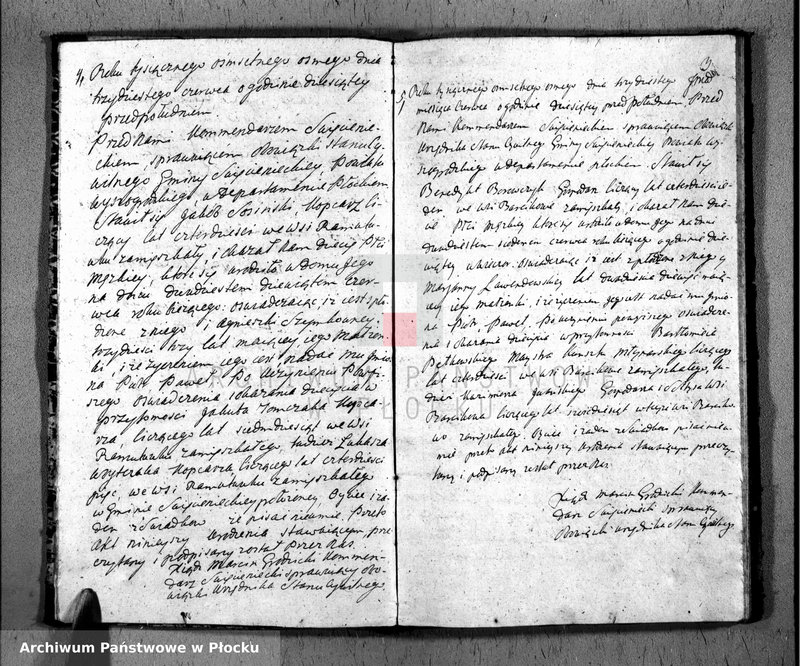 4, Roku tysiącznego ośmsetnego osmego dnia
trzydiestego czerwca o godzinie dziesiątej
przedpołudniem
Przed Nami Kommendarzem Święcienie-
ckiem sprawującem Obowiązki Stanu Cy-
wilnego Gminy Święcienieckiey, Powiatu
Wyszogrodzkiego, w Departamencie Płockiem
Stawił się Jakób Sosiński, Kopcarz li-
czący lat czterdzieści we wsi Ramutu-
wku zamięszkały, i okazał Nam dziecię Płci
Męzkiey, które się urodziło w domu jego
na dniu dwudziestem dziewiątem Czer-
wca roku bieżącego: oświadczając, iż jest spło-
dzone z niego i Agnieszki Szymkowney,
trzydzieści trzy lat maiącey, jego Małżon-
ki, i że życzeniem jego jest nadać mu Imio-
na Piotr, Paweł. Po uczynieniu Powy-
szego oświadczenia i okazania dziecięcia w
przytomności Jakuba Tomczaka Kopca-
rza, liczącego lat siedmdziesiąt we wsi
Ramutuwku zamięszkałego, tudzież Łukasza
Kopcarza liczącego lat czterdzieści
pięć, we wsi Ramutuwku zamięszkałego
w Gminie Święcienieckiey położoney Oyciec i ża-
den z Świadków że pisać nieumie, Przeto
Akt ninieyszy Urodzenia stawaiącym prze-
czytany i podpisany został przez Nas.
Xiądz Marcin Grodzicki Kommen-
darz Święcieniecki sprawujący Obo-
wiązki Urzędnika Stanu Cywilnego
5, Roku tysiącznego ośmsetnego osmego dnia trzydziestego
miesiąca Czerwca o godzinie dziesiątey przed południem, Przed
Nami Kommendarzem Święcienieckiem sprawującem Obowiązki
Urzędnika Stanu Cywilnego Gminy Święcienieckiey Powiatu Wy-
szogrodzkiego w Departamencie Płockiem. Stawił się
Benedykt Gospodarz liczący lat czterdzieści je-
den we wsi zamięszkały, i okazał Nam dzie-
cię Płci Męzkiey które się urodziło w domu jego na dniu
dwudziestem siódmem czerwca roku bieżącego o godzinie dzie-
wiątey wieczor. Oświadczając iż jest spłodzone z niego y
Maryanny Lewendowskiey lat dwadzieścia dziewięć maią-
cey jego małżonki, i iż życzeniem jego jest nadać mu Imio-
na Piotr, Paweł. Po uczynieniu powyższego oświadcze-
nia i okazania dziecięcia w przytomności Bartłomieia
Pętkowskiego Maystra Kunsztu Młynarskiego liczącego
lat czterdzieści we wsi zamięszkałego, tu-
dzież Kazimierza Gospodarza i
liczącego lat sześćdziesiąt w teyże wsi
zamięszkałego. Oyciec i żaden ze Świadków pisać nieu-
mie przeto akt ninieyszy Urodzenia stawaiącym przeczy-
tany i podpisany został przez Nas.
Xiądz Marcin Grodzicki Kommen-
darz Święcieniecki sprawujący
Obowiązki Urzędnika Stanu Cywilnego
ARCHIWUM PAŃSTWOWE
W PŁOCKU
Archiwum Państwowe w Płocku